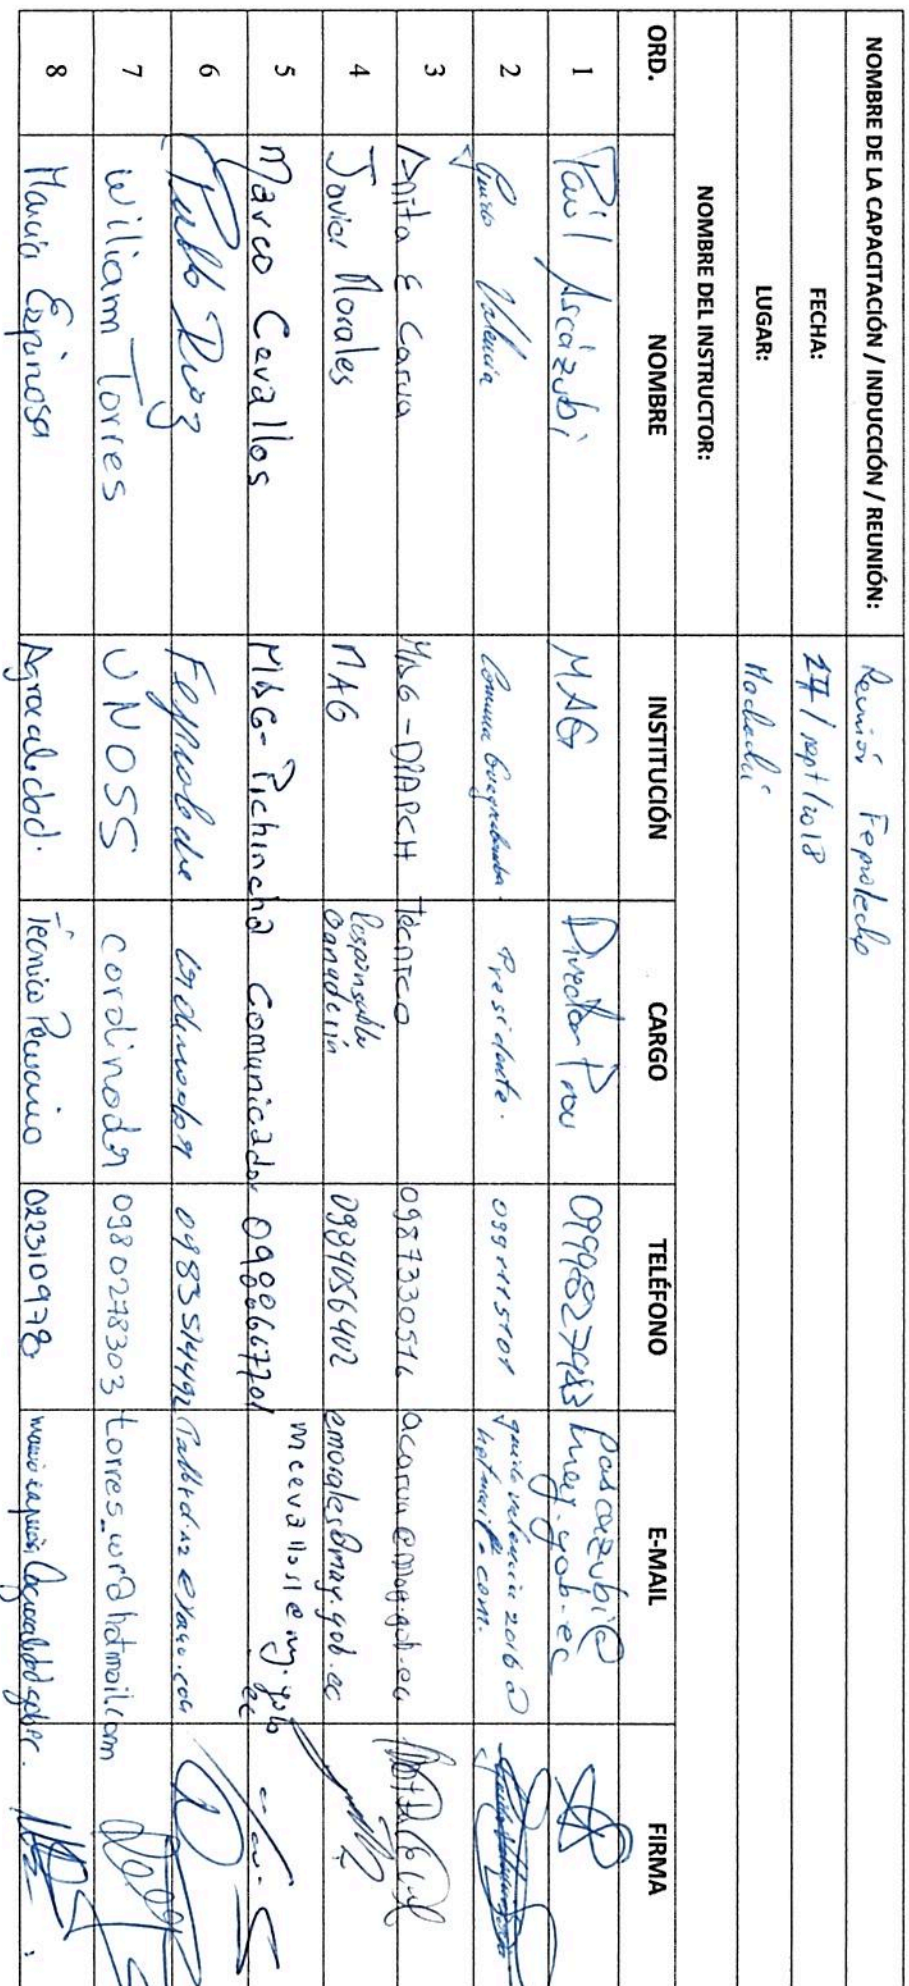 NOMBRE DE LA CAPACITACIÓN / INDUCCIÓN / REUNIÓN: Reunión Feprolechp
FECHA: 27/sept/2018
LUGAR: Machachi
NOMBRE DEL INSTRUCTOR:
ORD. NOMBRE INSTITUCIÓN CARGO TELÉFONO E-MAIL FIRMA
1 Paúl Ascázubi MAG Director Prov
2 Guido Valencia Comuna Presidente. 0991115101 guido valencia 2016@
hotmail.com.
3 Anita E Carua MAG-DPAPCH Técnico 0987330516 acarua@mag.gob.ec
4 Javier Morales MAG Responsable
Ganadería 0984056402 emorales@mag.gob.ec
5 Marco Cevallos MAG-Pichincha Comunicador mcevallos1@mg.gob
ec
6 Pablo Diaz Coordinador
7 wiliam Torres UNOSS cordinador 0980278303 torres_wr@hotmail.com
8 Marcia Espinosa Agrocalidad. Técnico Pecuario 022310978